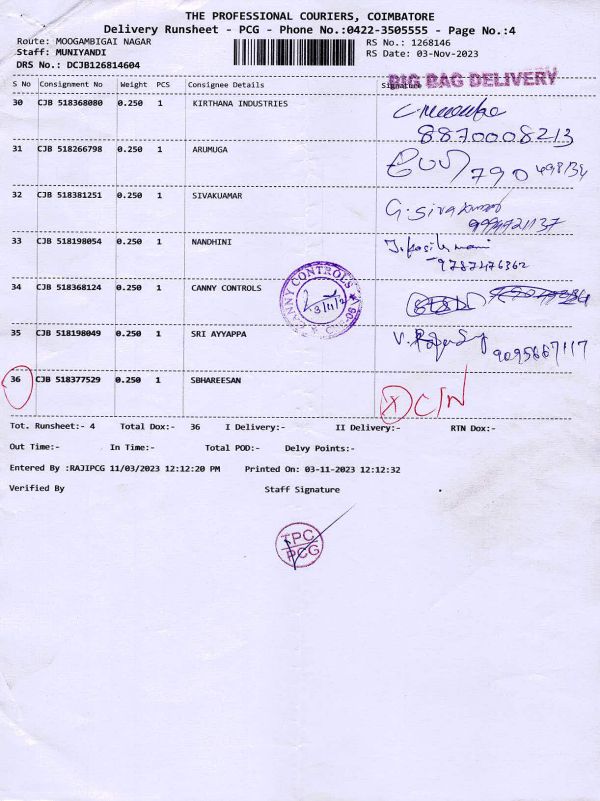 THE PROFESSIONAL COURIERS, COIMBATORE
Delivery Runsheet - PCG - Phone No.:0422-3505555 - Page No.:4
Route: MOOGAMBIGAI NAGAR RS No.: 1268146
Staff: MUNIYANDI RS Date: 03-Nov-2023
DRS No.: DCJB126814604
BIG BAG DELIVERY
S No Consignment No Weight PCS Consignee Details Signature
30 CJB 518368080 0.250 1 KIRTHANA INDUSTRIES
8870008213
31 CJB 518266798 0.250 1 ARUMUGA
790498134
32 CJB 518381251 0.250 1 SIVAKUAMAR G. Sivakumar
33 CJB 518198054 0.250 1 NANDHINI
9787476362
34 CJB 518368124 0.250 1 CANNY CONTROLS
CANNY CONTROLS
35 CJB 518198049 0.250 1 SRI AYYAPPA
9095867117
36 CJB 518377529 0.250 1 SBHAREESAN
X C/N
Tot. Runsheet:- 4 Total Dox:- 36 I Delivery:- II Delivery:- RTN Dox:-
Out Time:- In Time:- Total POD:- Delvy Points:-
Entered By :RAJIPCG 11/03/2023 12:12:20 PM Printed On: 03-11-2023 12:12:32
Verified By Staff Signature
TPC
PCG